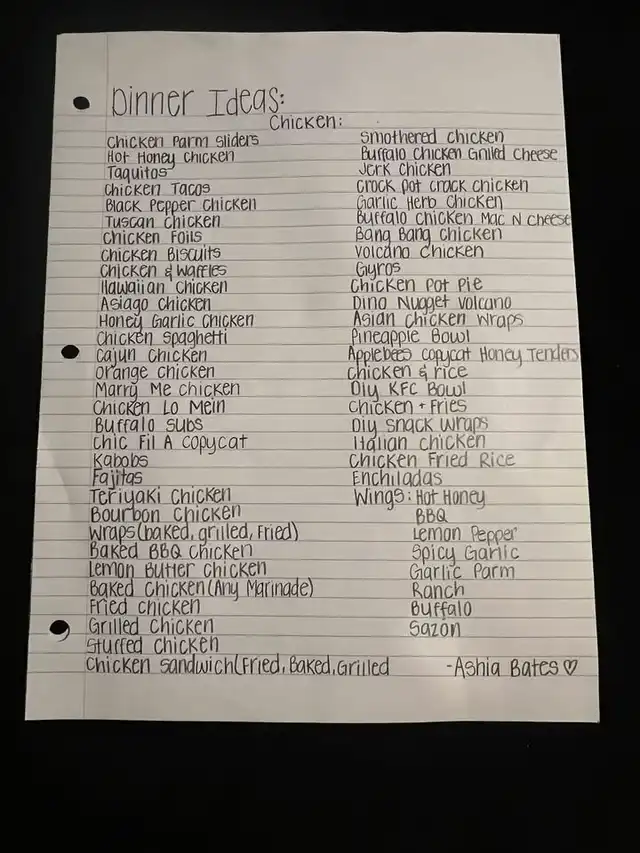 Dinner Ideas:
Chicken:
Chicken Parm Sliders
Hot Honey Chicken
Taquitos
Chicken Tacos
Black Pepper Chicken
Tuscan Chicken
Chicken Foils
Chicken Biscuits
Chicken & Waffles
Hawaiian Chicken
Asiago Chicken
Honey Garlic Chicken
Chicken Spaghetti
Cajun Chicken
Orange Chicken
Marry Me Chicken
Chicken Lo Mein
Buffalo Subs
Chic Fil A Copycat
Kabobs
Fajitas
Teriyaki Chicken
Bourbon Chicken
Wraps(baked, grilled, Fried)
Baked BBQ Chicken
Lemon Butter Chicken
Baked Chicken(Any Marinade)
Fried Chicken
Grilled Chicken
Stuffed Chicken
Chicken Sandwich(Fried, Baked, Grilled
Smothered Chicken
Buffalo Chicken Grilled Cheese
Jerk Chicken
Crock Pot Crack Chicken
Garlic Herb Chicken
Buffalo Chicken Mac N Cheese
Bang Bang Chicken
Volcano Chicken
Gyros
Chicken Pot Pie
Dino Nugget Volcano
Asian Chicken Wraps
Pineapple Bowl
Applebees Copycat Honey Tenders
Chicken & rice
Diy KFC Bowl
Chicken + Fries
Diy Snack Wraps
Italian Chicken
Chicken Fried Rice
Enchiladas
Wings: Hot Honey
BBQ
Lemon Pepper
Spicy Garlic
Garlic Parm
Ranch
Buffalo
Sazon
-Ashia Bates ♡